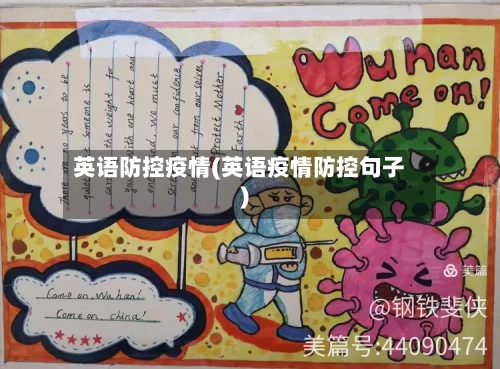 Wuhan
Come on!
There are no years to be
quiet, Someone is
the weight for
with one heart and
and. We must
our confidence
start from our selves
Protect Mother
Earth
英语防控疫情(英语疫情防控句子
)
Come on, Wuhan!
Come on, china!
美篇
@钢铁斐侠
美篇号:44090474